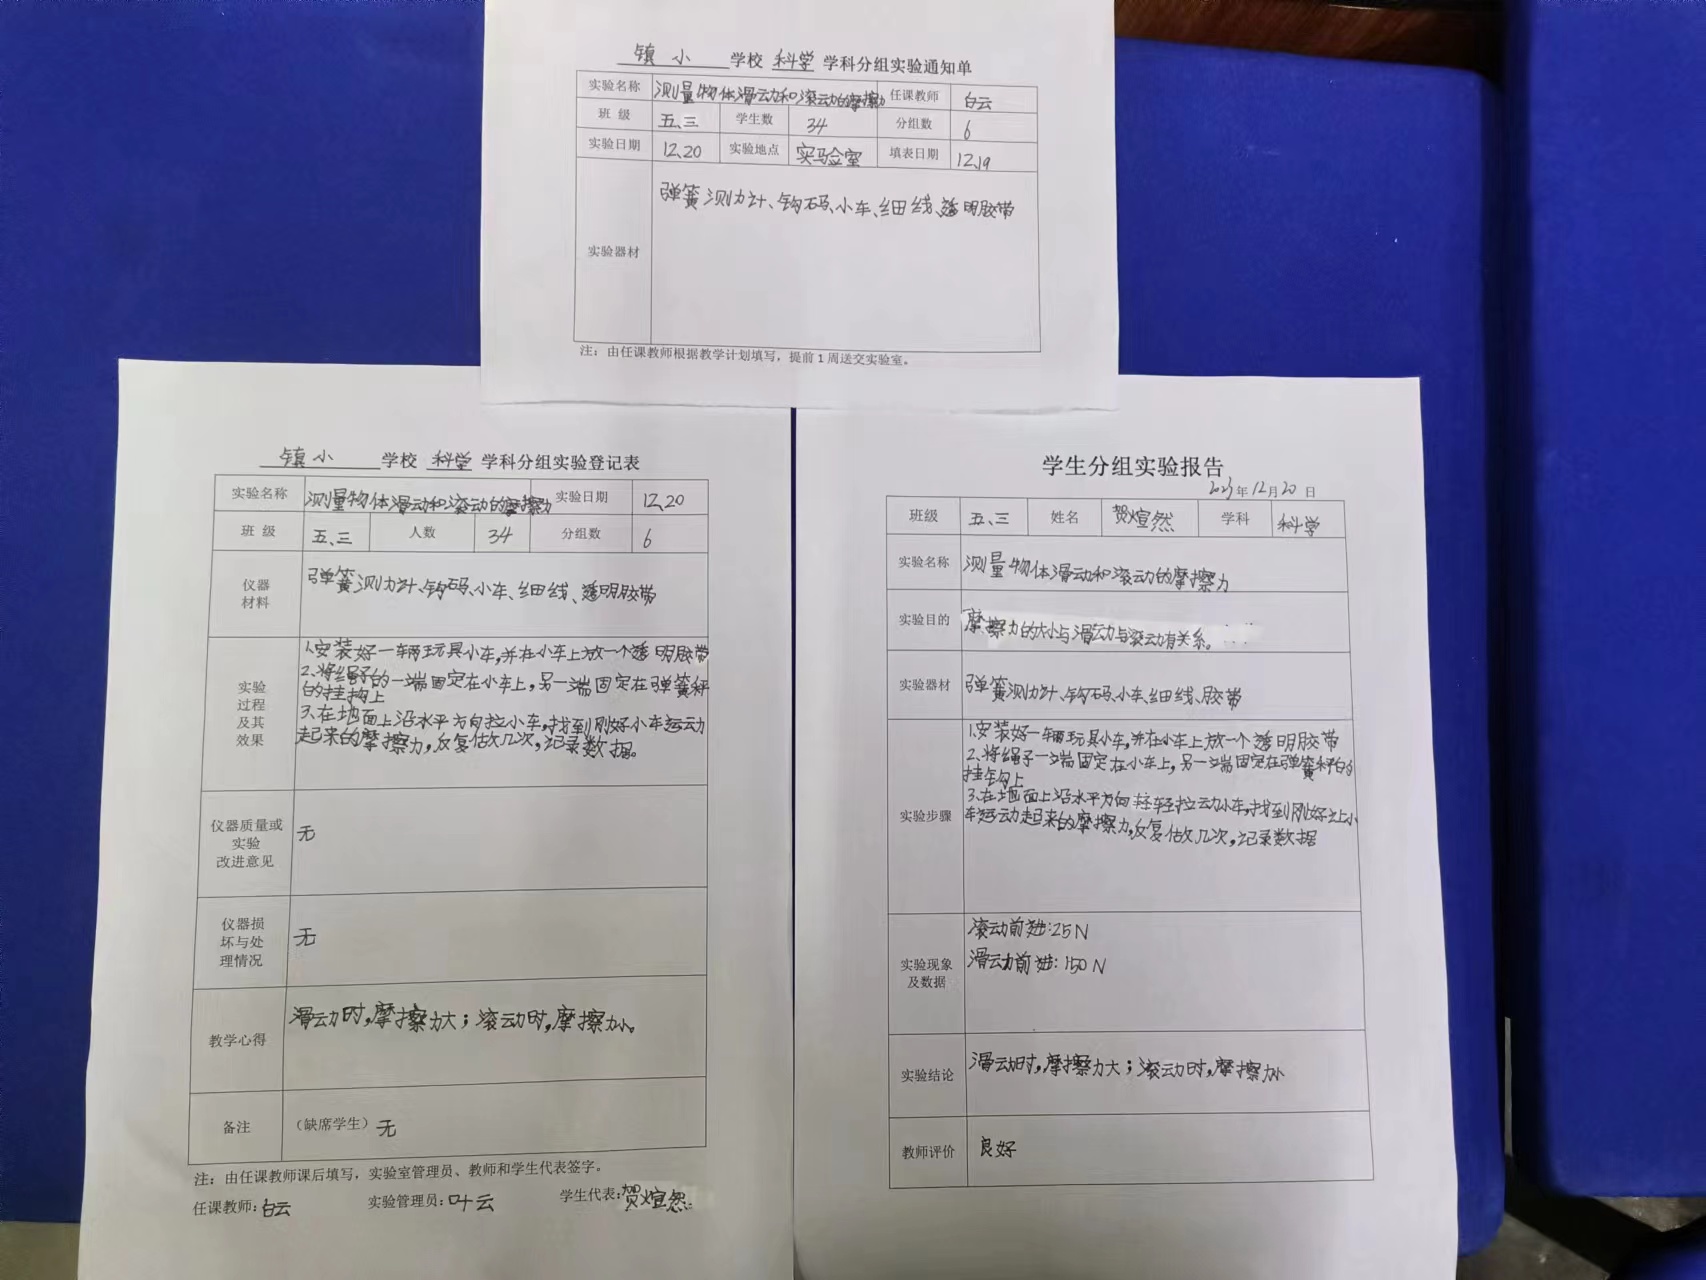 镇小 学校 科学 学科分组实验通知单
实验名称 测量物体滑动和滚动的摩擦力 任课教师 白云
班 级 五、三 学生数 34 分组数 6
实验日期 12.20 实验地点 实验室 填表日期 12.19
实验器材 弹簧测力计、钩码、小车、细线、透明胶带
注：由任课教师根据教学计划填写，提前1周送交实验室。
镇小 学校 科学 学科分组实验登记表
实验名称 测量物体滑动和滚动的摩擦力 实验日期 12.20
班 级 五、三 人数 34 分组数 6
仪器
材料
弹簧测力计、钩码、小车、细线、透明胶带
实验
过程
及其
效果
1.安装好一辆玩具小车,并在小车上放一个透明胶带
2.将绳子的一端固定在小车上,另一端固定在弹簧秤
的挂钩上
3.在地面上沿水平方向拉小车,找到刚好小车运动
起来的摩擦力,反复做几次,记录数据。
仪器质量或
实验
改进意见
无
仪器损
坏与处
理情况
无
教学心得 滑动时,摩擦力大；滚动时,摩擦力小。
备注 （缺席学生）无
注：由任课教师课后填写，实验室管理员、教师和学生代表签字。
任课教师:白云 实验管理员:叶云 学生代表:贺煊然
学生分组实验报告
2023年12月20日
班级 五、三 姓名 贺煊然 学科 科学
实验名称 测量物体滑动和滚动的摩擦力
实验目的 摩擦力的大小与滑动与滚动有关系。
实验器材 弹簧测力计、钩码、小车、细线、胶带
实验步骤
1.安装好一辆玩具小车,并在小车上放一个透明胶带
2.将绳子一端固定在小车上,另一端固定在弹簧秤的
挂钩上
3.在地面上沿水平方向轻轻拉动小车,找到刚好让小
车运动起来的摩擦力,反复做几次,记录数据
实验现象
及数据
滚动前进:25N
滑动前进:150N
实验结论 滑动时,摩擦力大；滚动时,摩擦力小
教师评价 良好